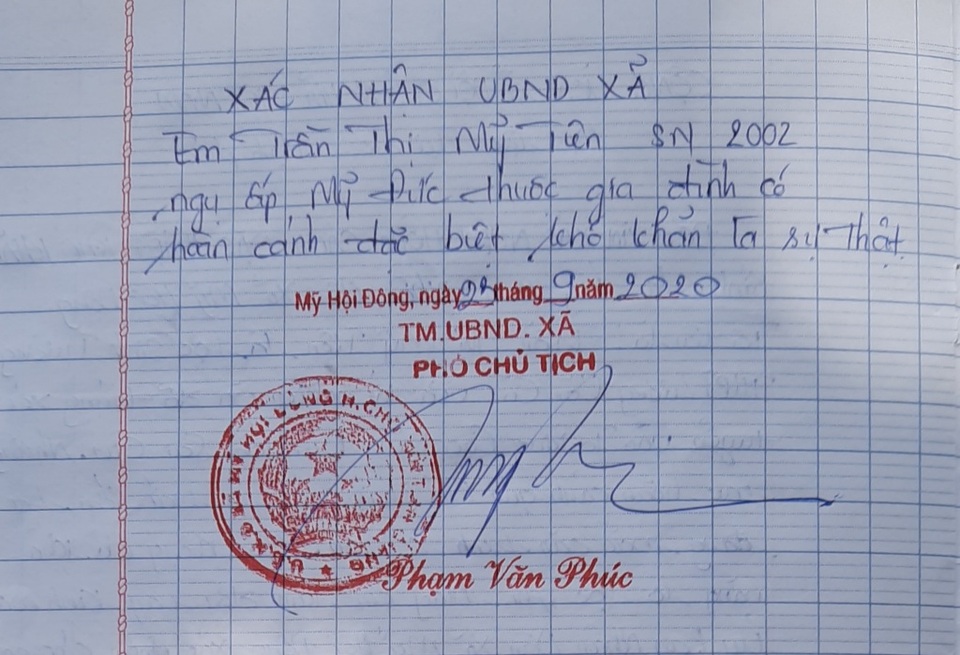 XÁC NHẬN UBND XÃ
Em Trần Thị Mỹ Tiên SN 2002
ngụ ấp Mỹ Đức thuộc gia đình có
hoàn cảnh đặc biệt khó khăn là sự thật
Mỹ Hội Đông, ngày tháng 9 năm 2020
TM.UBND. XÃ
PHÓ CHỦ TỊCH
U.B.N.D XÃ MỸ HỘI ĐÔNG H.CHỢ
Phạm Văn Phúc